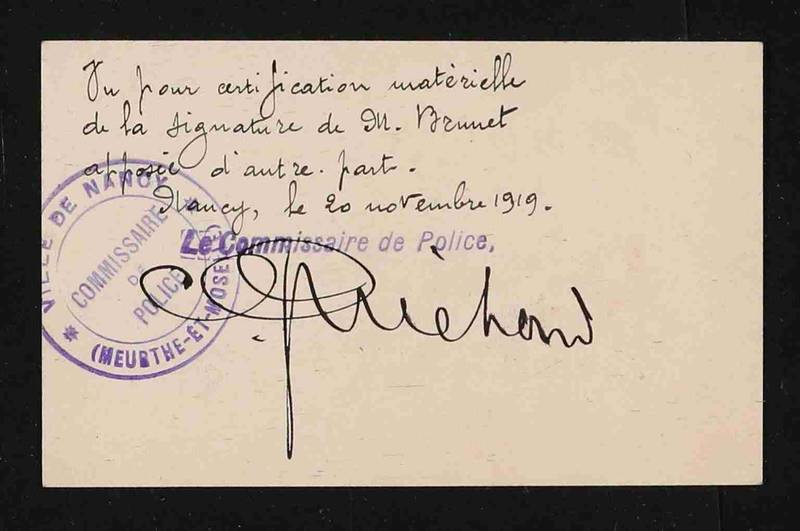 Vu pour certification matérielle
de la signature de M. Brunet
apposée d'autre part.
Nancy, le 20 novembre 1919.
Le Commissaire de Police,
VILLE DE NANCY
COMMISSAIRE
DE
POLICE
(MEURTHE-ET-MOSELLE)